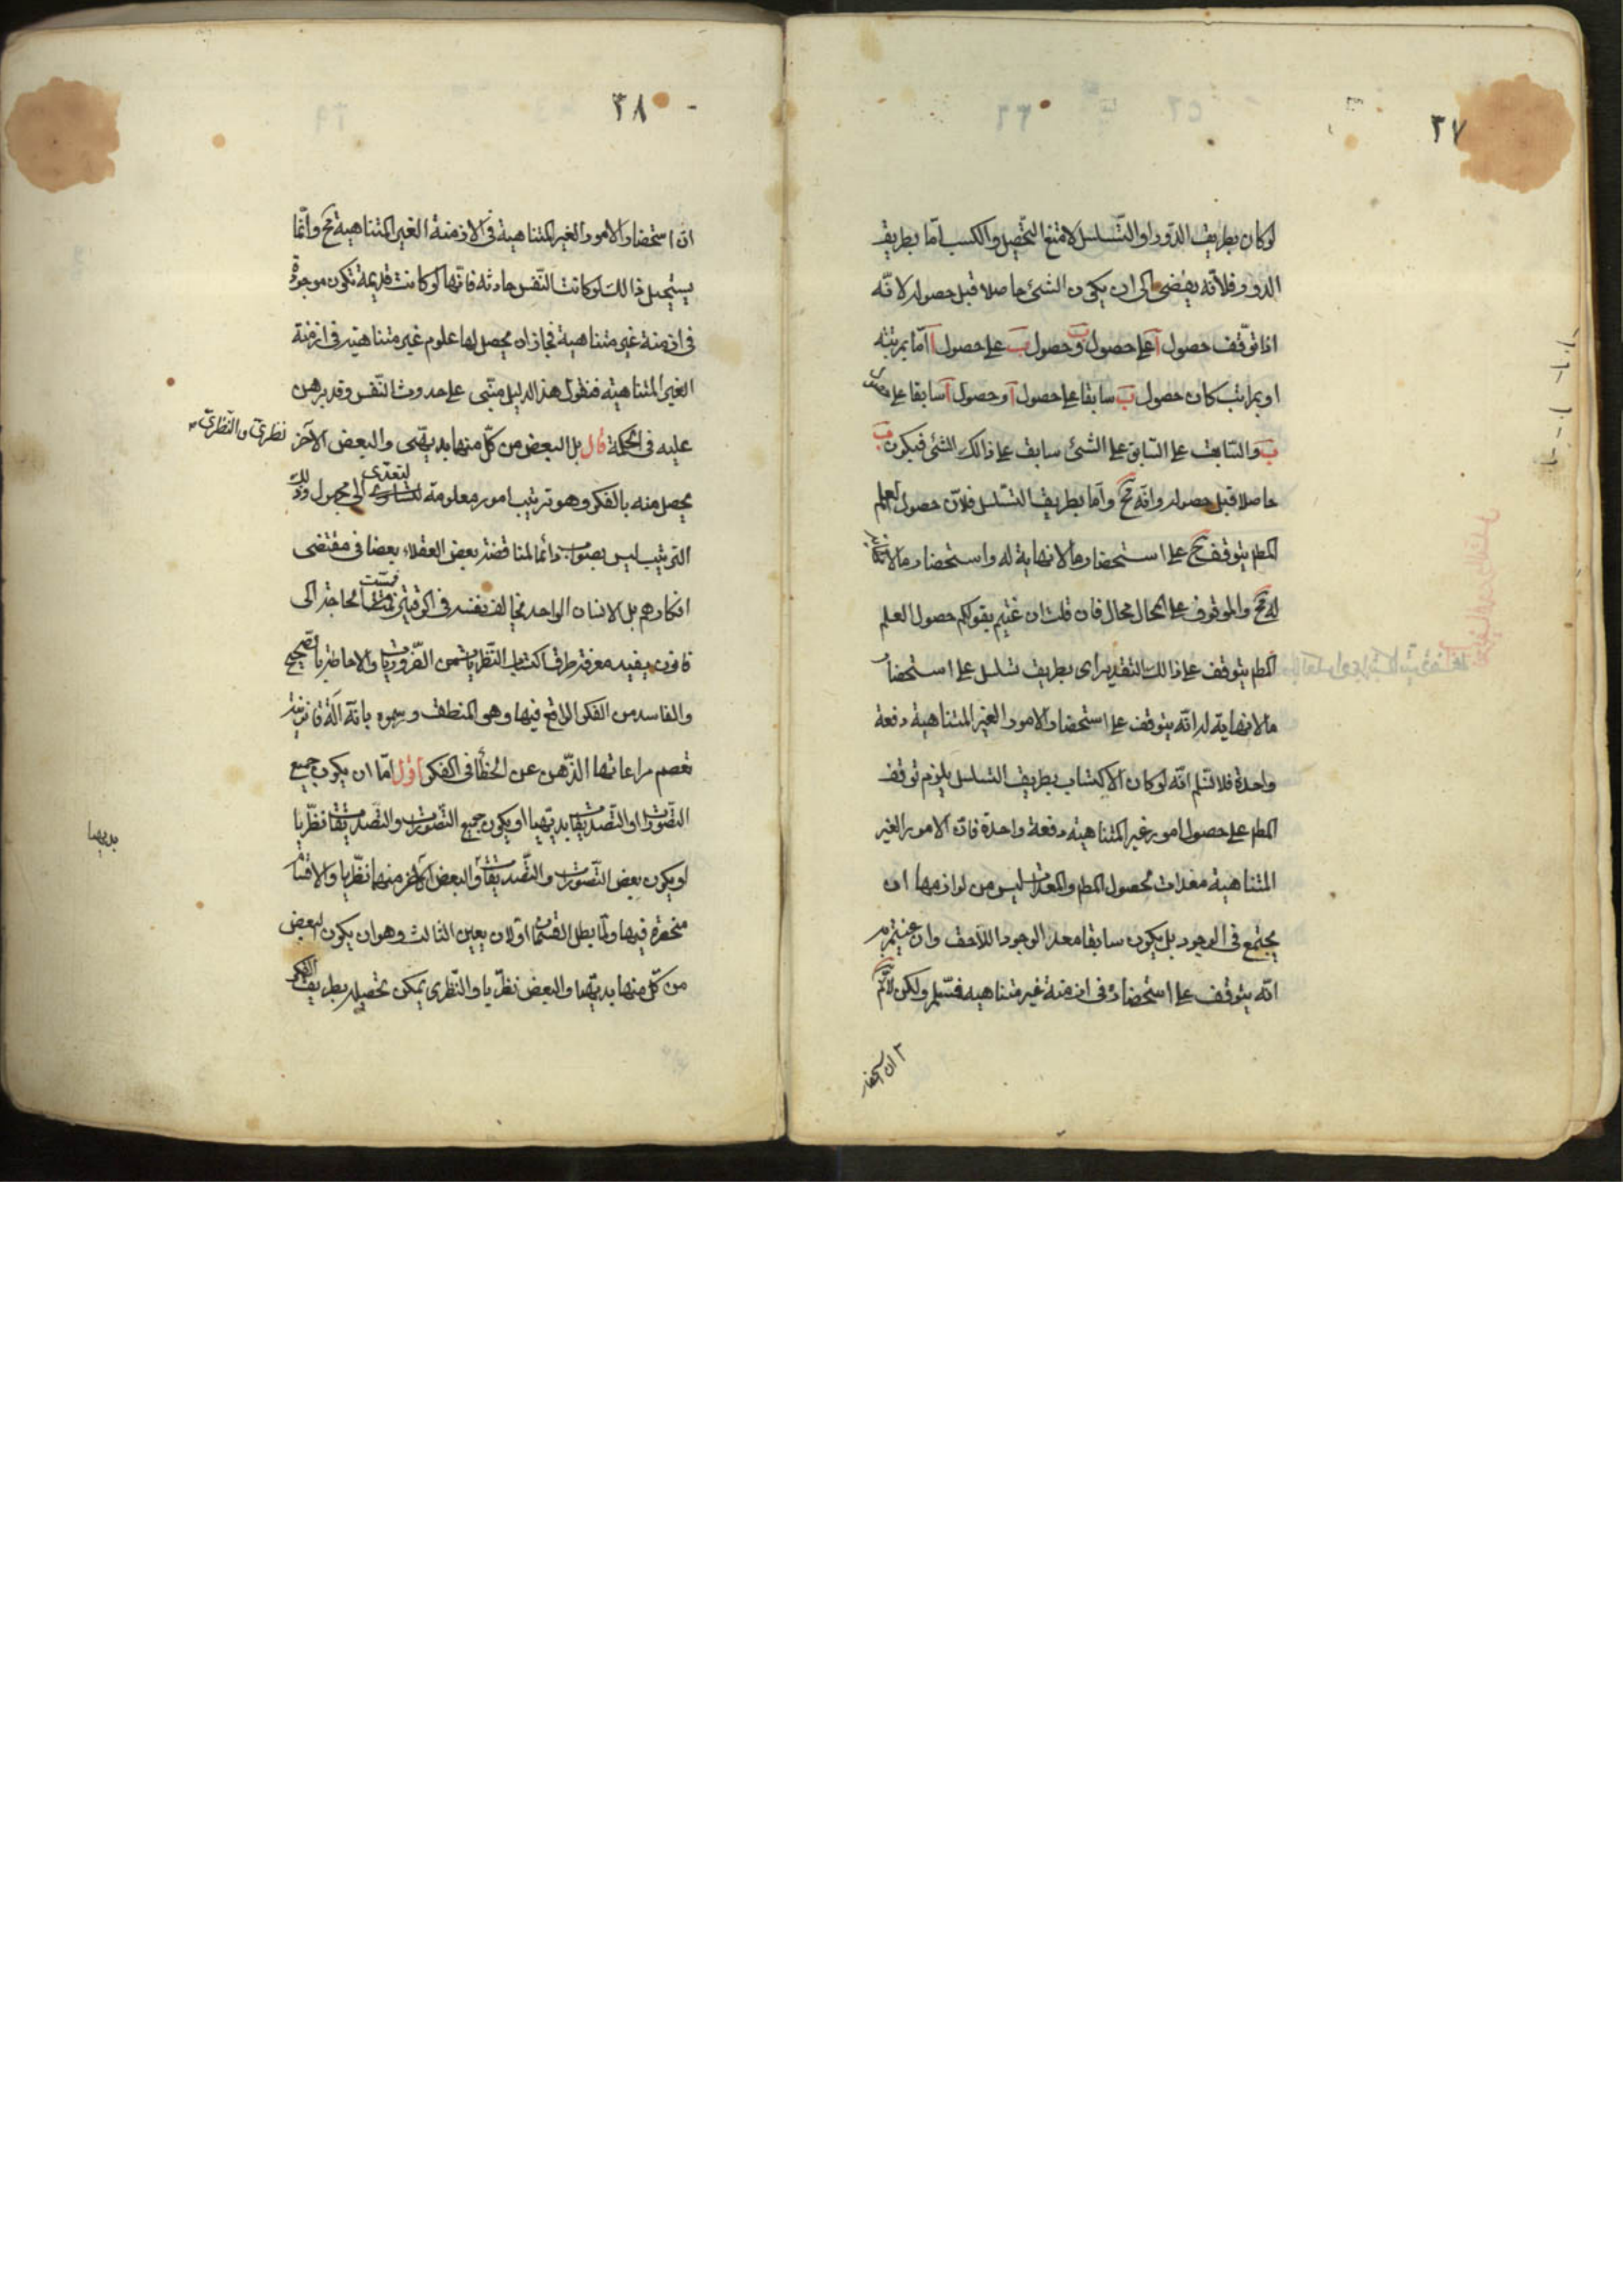 ٢٧
لو كان بطريق الدّور او التّسلسل لامتنع التحصيل والكسب امّا بطريق
الدور فلانّه يفضى الى ان يكون الشئ حاصلا قبل حصوله لانّه
اذا توقّف حصول آ على حصول ب وحصول ب على حصول آ امّا بمرتبه
او بمراتب كان حصول ب سابقا على حصول آ وحصول آ سابقا على حصول
ب والسّابق على السّابق على الشئ سابق على ذالك الشئ فيكون ب
حاصلا قبل حصوله وانّه مح وامّا بطريق التسّلسل فلانّ حصول العلم
المطم يتوقف ح على استحضار ما لا نهاية له واستحضار ما لا نهاية
له مح والموقوف على المحال محال فان قلت ان عنيتم بقولكم حصول العلم
المطم يتوقف على ذالك التقدير اى بطريق تسلسل على استحضار
ما لا نهاية له انّه يتوقف على استحضار الامور الغير المتناهية دفعة
واحدة فلا نسّلم انّه لو كان الاكتساب بطريق التسلسل يلزم توقف
المطم على حصول امور غير المتناهيه دفعة واحدة فانّ الامور الغير
المتناهية معدات لحصول المطم والمعدات ليس من لوازمها ان
يجتمع فى الوجود بل يكون سابقا معد الوجود اللاحق وان عنيتم به
انّه يتوقف على استحضاره فى ازمنة غير متناهيه فمسّلم ولكن لانّم
ان استحضار
٣٨
انّ استحضار الامور الغير المتناهية فى الازمنة الغير المتناهية مح وانّما
يستحيل ذالك لو كانت النّفس حادثه فانّها لو كانت قديمة تكون موجودة
فى ازمنة غير متناهية فجاز ان يحصل لها علوم غير متناهيّه فى ازمنة
الغير المتناهيّه فنقول هذا الدليل مبنّى على حدوث النّفس وقد برهن
عليه فى الحكمة قال بل البعض من كلّ منهما بديهّى والبعض الآخر نظرىّ والنّظرىّ
يحصل منه بالفكر وهو ترتيب امور معلومة لتعدّى الى مجهول وذلك
الترتيب ليس بصواب دائما لمناقضة بعض العقلاء بعضا فى مقتضى
افكارهم بل الانسان الواحد يخالف نفسه فى الوقتين فمسّت الحاجة الى
قانون يفيد معرفة طرق اكتساب النّظريات من الضّروريات والاحاطة بالصّحيح
والفاسد من الفكر الواقع فيها وهى المنطق ورسموه بانّه آلة قانونيّه
تعصم مراعاتها الذّهن عن الخطأ فى الفكر اقول امّا ان يكون جميع
التصّورات او التّصديقات بديهيّا او يكون جميع التصّورات والتّصديقات نظّريا
او يكون بعض التّصورات والتّصديقات والبعض الآخر منهما نظّريا والاقسام
بديهيا
منحصرة فيها ولمّا بطل القسمان الاوّلان يعين الثالث وهو ان يكون البعض
من كلّ منهما بديهّيا والبعض نظّريا والنّظرى يمكن تحصيله بطريق الفكر